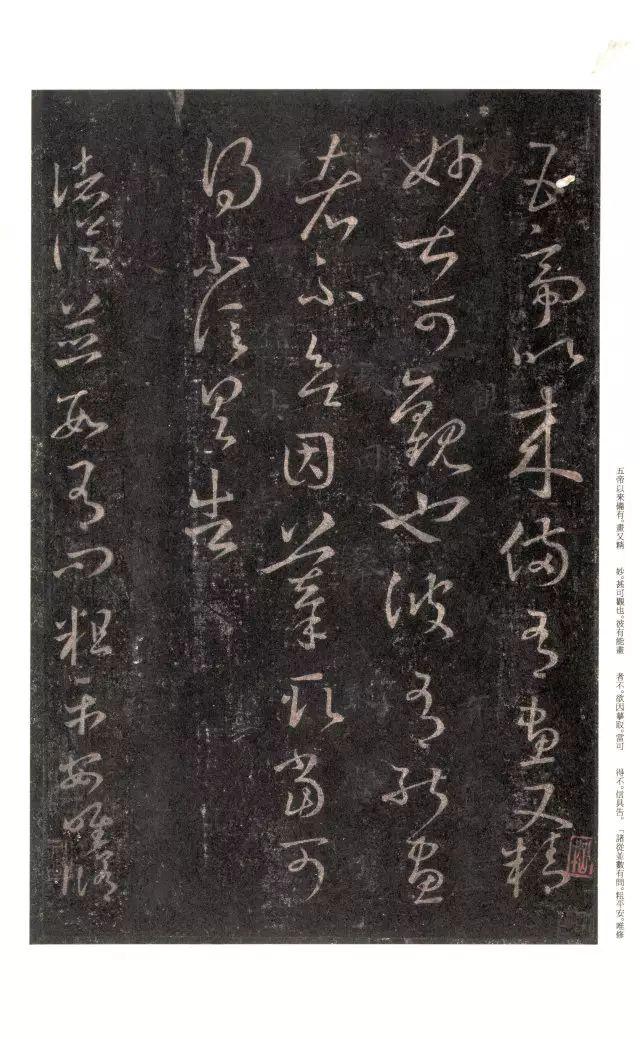 五帝以來備有畫又精
妙甚可觀也彼有能畫
者不欲因摹取當可
得不信具告
諸從並數有問粗平安唯修
五帝以來備有。畫又精
妙。甚可觀也。彼有能畫
者不。欲因摹取。當可
得不。信具告。
「諸從並數有問。粗平安。唯修